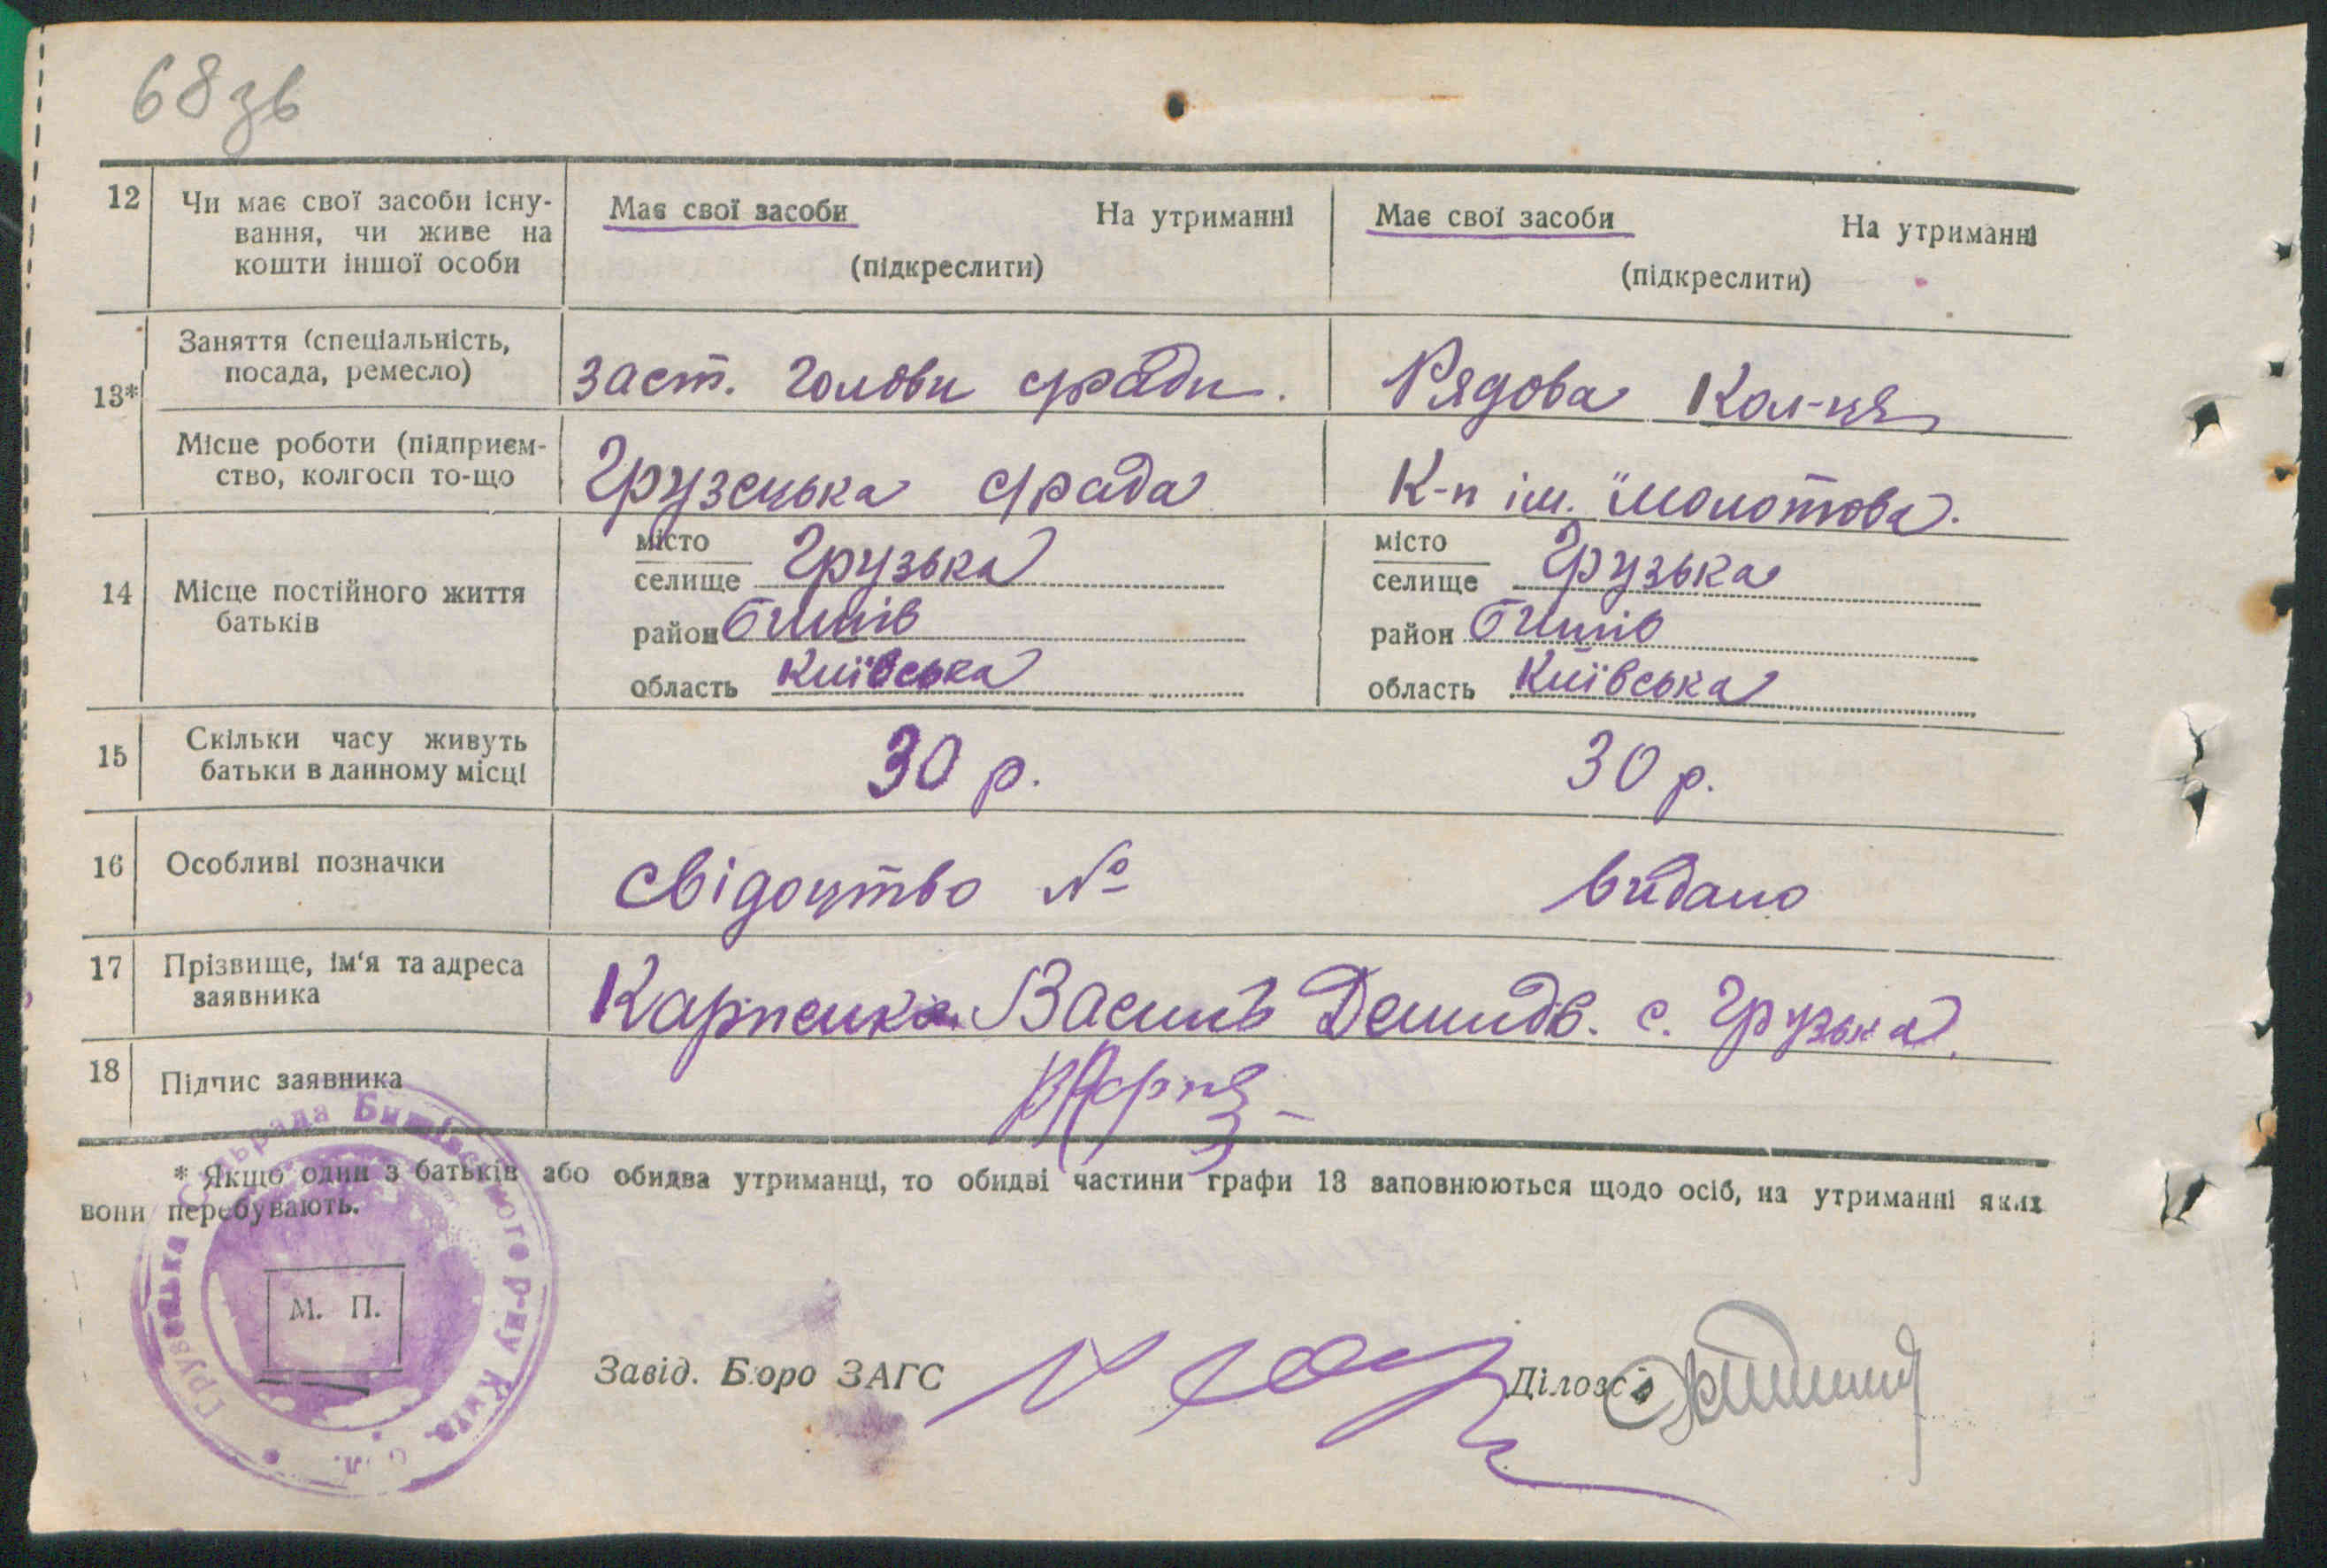 68зв
12 Чи має свої засоби існу- Має свої засоби На утриманні Має свої засоби На утриманні
вання, чи живе на
кошти іншої особи (підкреслити) (підкреслити)
Заняття (спеціальність,
посада, ремесло) заст. голови с/ради. Рядова Кол-ця
13*
Місце роботи (підприєм-
ство, колгосп то-що Грузецька с/рада К-п ім. "Молотова.
місто місто
селище Грузька селище Грузька
14 Місце постійного життя
батьків район Бишів район Бишів
область Київська область Київська
15 Скільки часу живуть
батьки в данному місці 30 р. 30 р.
16 Особливі позначки свідоцтво № видано
17 Прізвище, ім'я та адреса
заявника Карпенко Василь Демидв. с. Грузька.
18 Підпис заявника
* Якщо один з батьків або обидва утриманці, то обидві частини графи 13 заповнюються щодо осіб, на утриманні яких
вони перебувають.
Грузецька Сільрада Бишівського р-ну Київ.
М. П.
Завід. Бюро ЗАГС Діловод